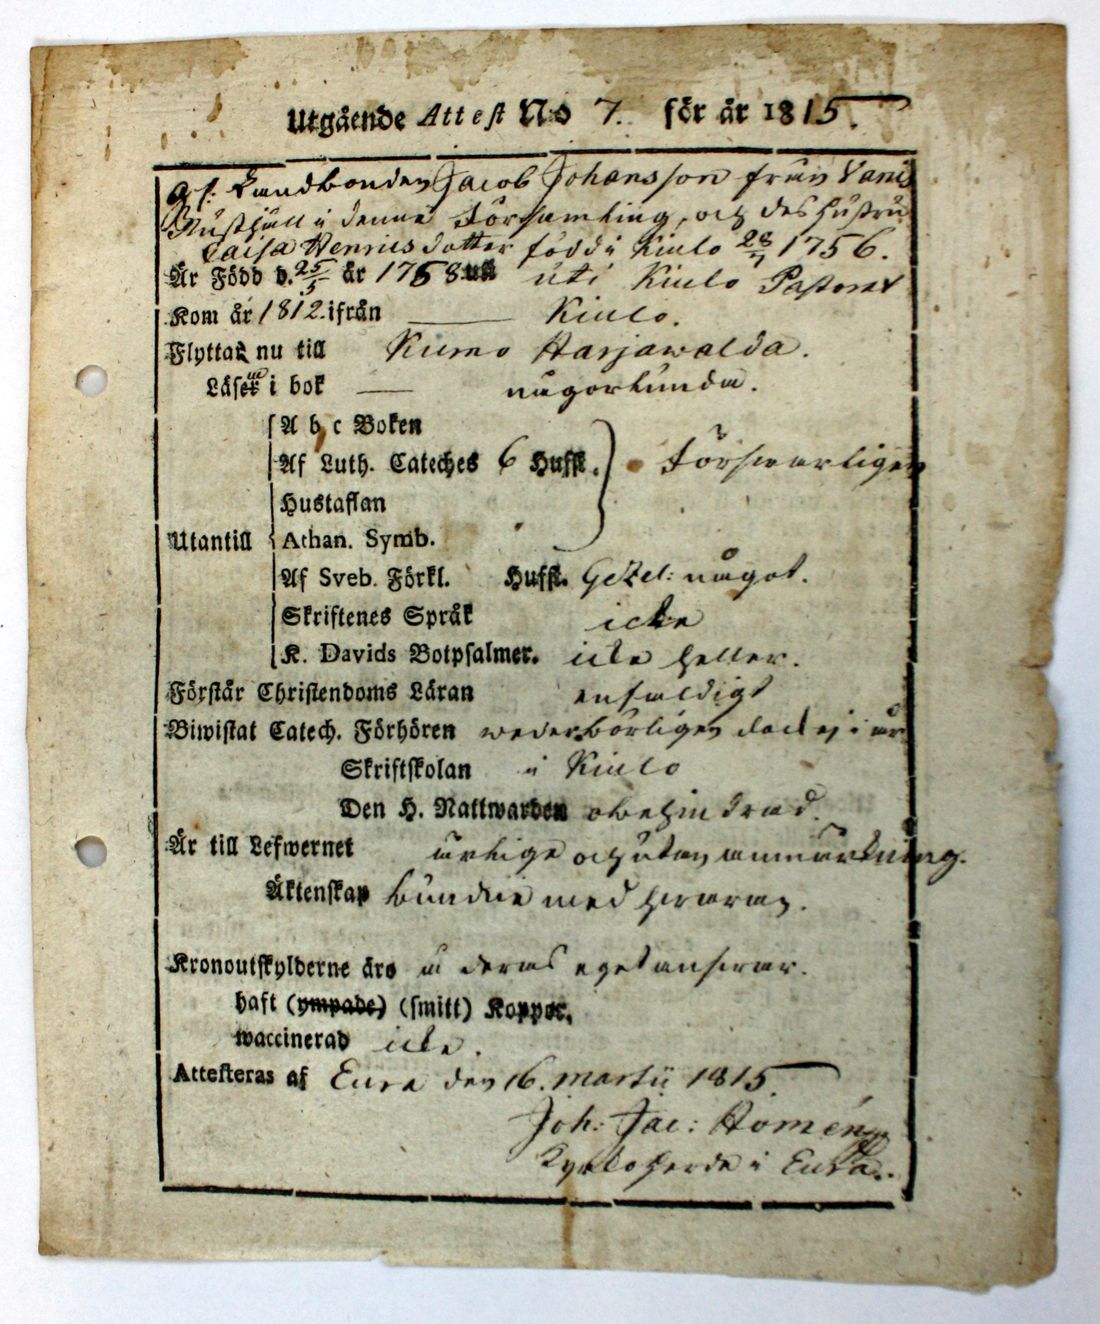 Utgående Attest No 7. för år 1815.
gf. Landbonden Jacob Johansson från Vanis
Rusthåll i denne Församling, och des hustru
Caisa Henricsdotter född i Kiulo 28/7 1756.
Är Född d. 25/5 år 1758 uti Kiulo Pastorat
Kom år 1812. ifrån Kiulo.
Flyttar nu till Kumo Harjawalda.
Läser i bok någorlunda.
A b c Boken
Af Luth. Cateches 6 Hufst. försvarligen
Hustaflan
Utantill Athan. Symb.
Af Sveb. Förkl. Hufst. Gezel: något.
Skriftenes Språk icke
K. Davids Botpsalmer. icke heller.
Förstår Christendoms Läran enfaldigt
Biwistat Catech. Förhören wederbörligen dock ej i år
Skriftskolan i Kiulo
Den H. Nattwarden obehindrad.
Är till Lefwernet ärlige och utan anmärkning.
Äktenskap bundne med hvaran.
Kronoutskylderne äro å deras eget answar.
haft (ympade) (smitt) Koppor,
waccinerad icke.
Attesteras af Eura den 16. Martii 1815
Joh: Jac: Homén
Kyrkoherde i Eura.